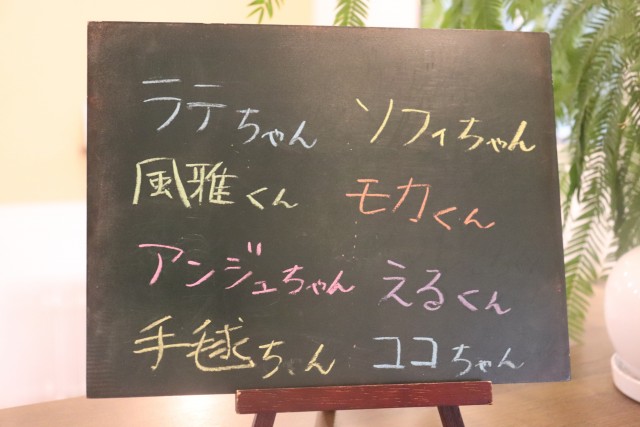 ラテちゃん ソフィちゃん
風雅くん モカくん
アンジュちゃん えるくん
手毬ちん ココちゃん